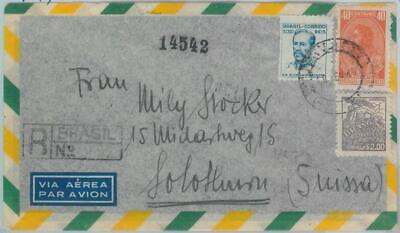 14542
BRASIL CORREIO
40
Frau Mily Stöcker
15 Midartweg 15
R BRASIL
No.
Solothurn (Suissa)
VIA AÉREA
PAR AVION
$2,00